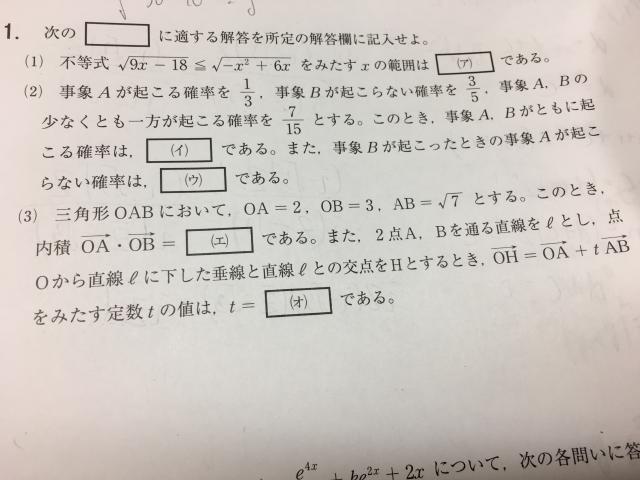 1. 次の □ に適する解答を所定の解答欄に記入せよ。
(1) 不等式 √(9x − 18) ≦ √(−x² + 6x) をみたす x の範囲は (ア) である。
(2) 事象 A が起こる確率を 1/3, 事象 B が起こらない確率を 3/5, 事象 A, B の
少なくとも一方が起こる確率を 7/15 とする。このとき, 事象 A, B がともに起
こる確率は, (イ) である。また, 事象 B が起こったときの事象 A が起こ
らない確率は, (ウ) である。
(3) 三角形 OAB において, OA = 2, OB = 3, AB = √7 とする。このとき,
内積 OA→・OB→ = (エ) である。また, 2点A, Bを通る直線を ℓ とし, 点
Oから直線 ℓ に下した垂線と直線 ℓ との交点をHとするとき, OH→ = OA→ + t AB→
をみたす定数 t の値は, t = (オ) である。
e^{4x} + be^{2x} + 2x について, 次の各問いに答